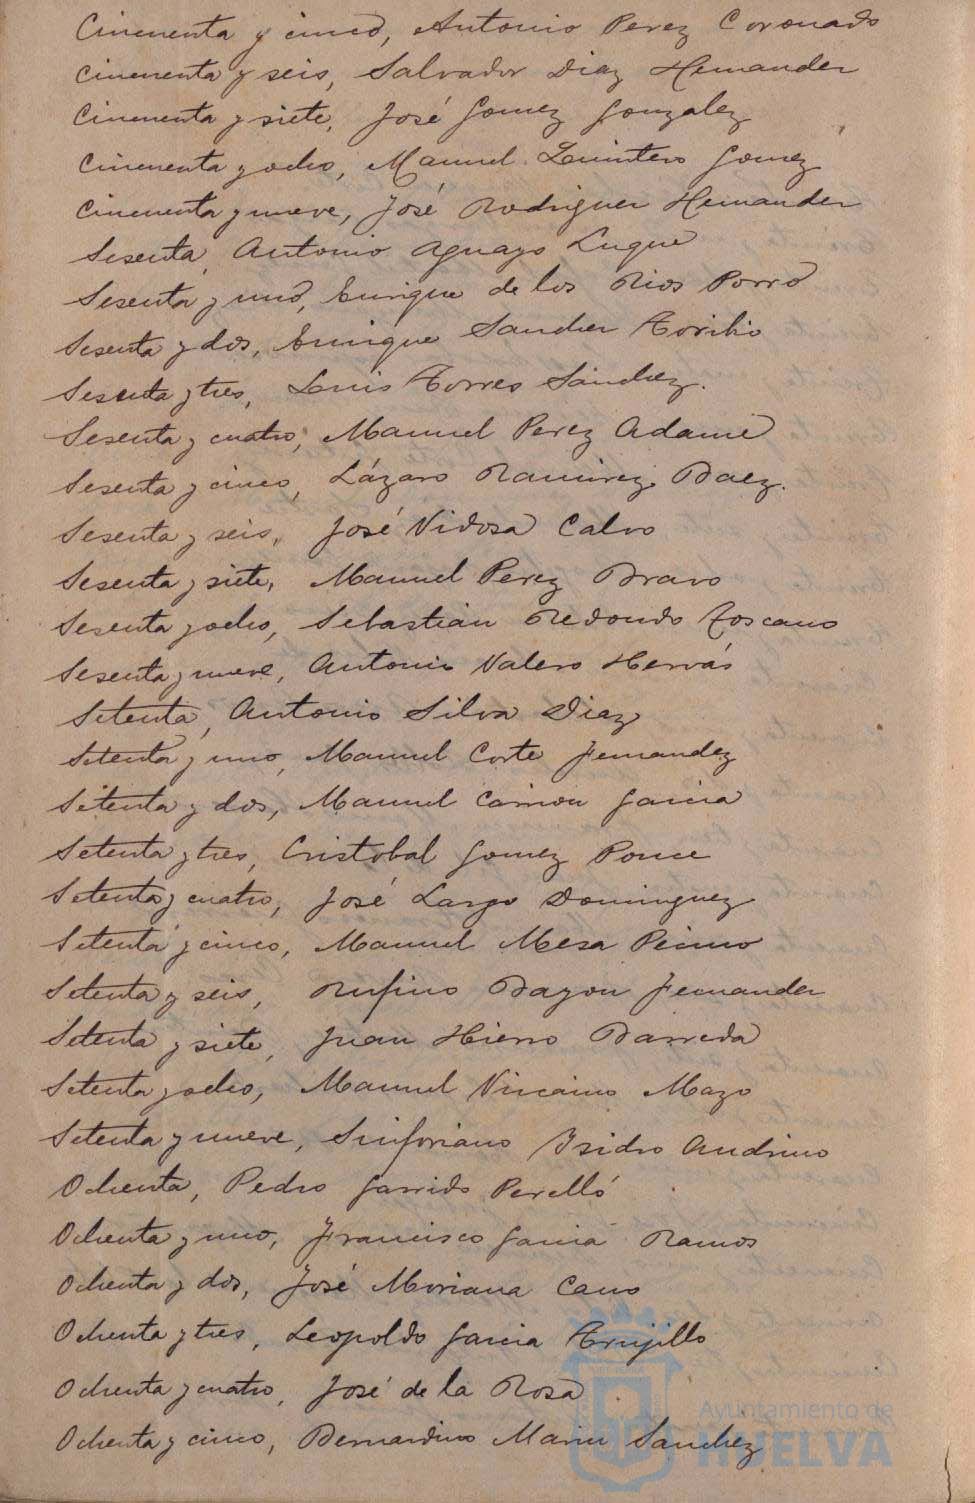 Cincuenta y cinco, Antonio Perez Coronado
Cincuenta y seis, Salvador Diaz Hernandez
Cincuenta y siete, José Gomez Gonzalez
Cincuenta y ocho, Manuel Quintero Gomez
Cincuenta y nueve, José Rodriguez Hernandez
Sesenta, Antonio Aguayo Luque
Sesenta y uno, Enrique de los Rios Porro
Sesenta y dos, Enrique Sanchez Toribio
Sesenta y tres, Luis Torres Sánchez.
Sesenta y cuatro, Manuel Perez Adame
Sesenta y cinco, Lázaro Ramirez Baez.
Sesenta y seis, José Vidosa Calvo
Sesenta y siete, Manuel Perez Bravo
Sesenta y ocho, Sebastián Redondo Toscano
Sesenta y nueve, Antonio Valero Hervás
Setenta, Antonio Silva Diaz
Setenta y uno, Manuel Corte Fernandez
Setenta y dos, Manuel Garcia
Setenta y tres, Cristobal Gomez Ponce
Setenta y cuatro, José Largo Dominguez
Setenta y cinco, Manuel Mesa
Setenta y seis, Rufino Bayon Fernandez
Setenta y siete, Juan Hierro Barreda
Setenta y ocho, Manuel Vizcaino Mazo
Setenta y nueve, Sinforiano Isidro Andrino
Ochenta, Pedro Garrido Perelló
Ochenta y uno, Francisco Garcia Ramos
Ochenta y dos, José Moriana Cano
Ochenta y tres, Leopoldo Garcia Trujillo
Ochenta y cuatro, José de la Rosa
Ochenta y cinco, Bernardino Marin Sanchez
Ayuntamiento de
HUELVA